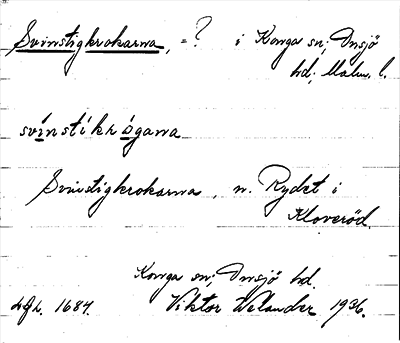 Svinstigkrokarna, =? i Konga sn; Onsjö
hd; Malm. l.
svínstíkrògarna
Svinstigkrokarna, n. Rydet i
Kloveröd.
Konga sn; Onsjö hd.
1684. Viktor Welander 1936.